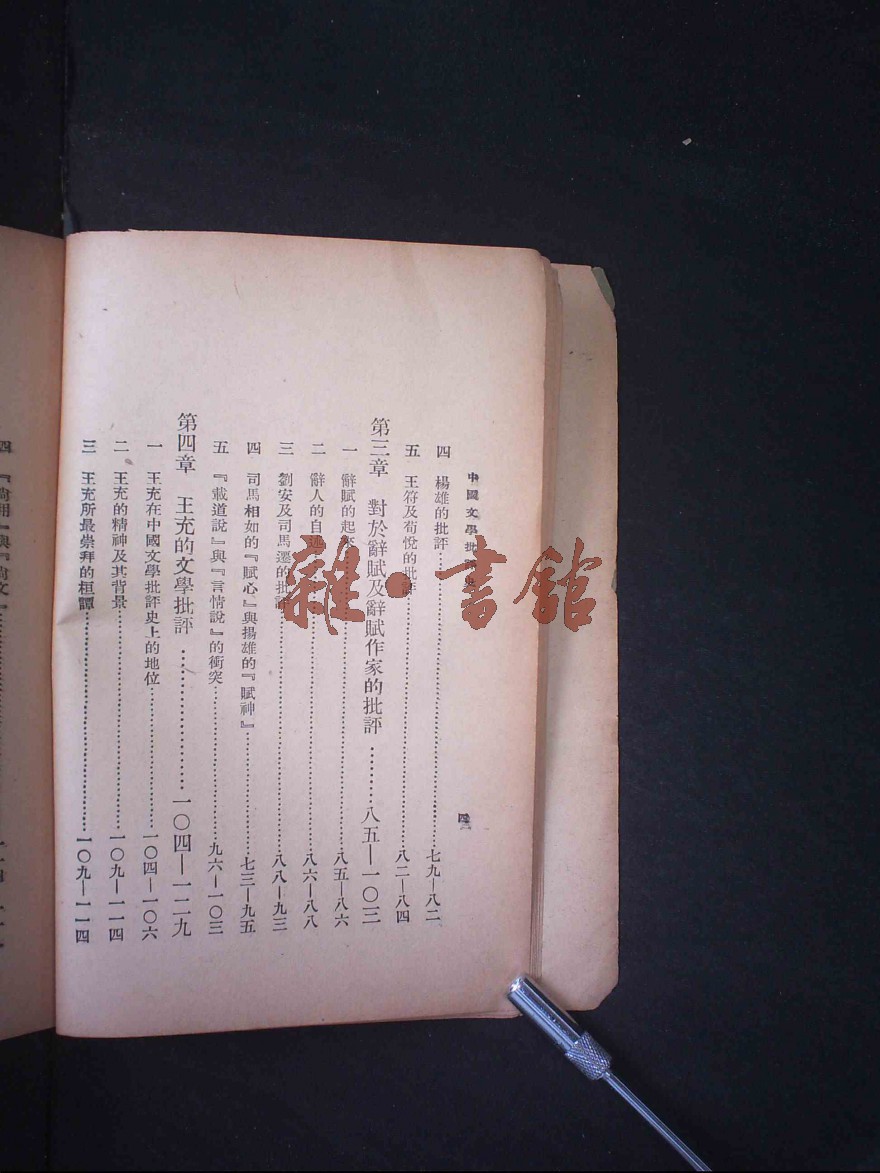 中國文學批評史
四
四 楊雄的批評…………七九—八二
五 王符及荀悅的批評…………八二—八四
第三章 對於辭賦及辭賦作家的批評…………八五—一〇三
一 辭賦的起來…………八五—八六
二 辭人的自述…………八六—八八
三 劉安及司馬遷的批評…………八八—九三
四 司馬相如的『賦心』與揚雄的『賦神』…………七三—九五
五 『載道說』與『言情說』的衝突…………九六—一〇三
第四章 王充的文學批評…………一〇四—一二九
一 王充在中國文學批評史上的地位…………一〇四—一〇六
二 王充的精神及其背景…………一〇九—一一四
三 王充所最崇拜的桓譚…………一〇九—一一四
四 『尚用』與『尚文』
雜·書館